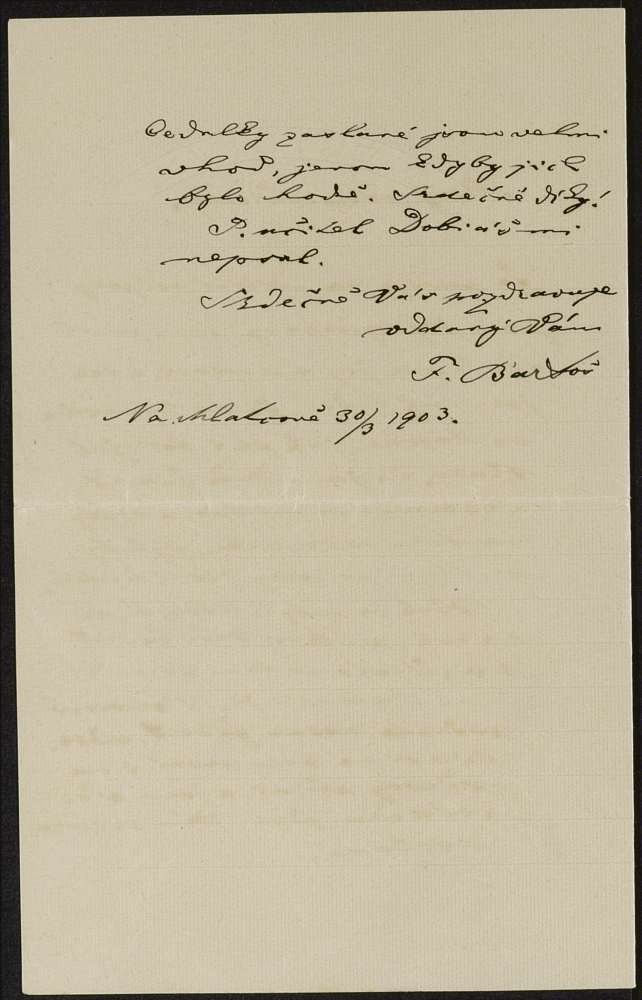 Cedulky zaslané jsou velmi
vhod, jenom kdyby jich
bylo hodně. Srdečné díky!
P. učitel Dobiáš mi
nepsal.
Srdečně Vás pozdravuje
oddaný Vám
F. Bartoš
Na Mlatcově 30/3 1903.